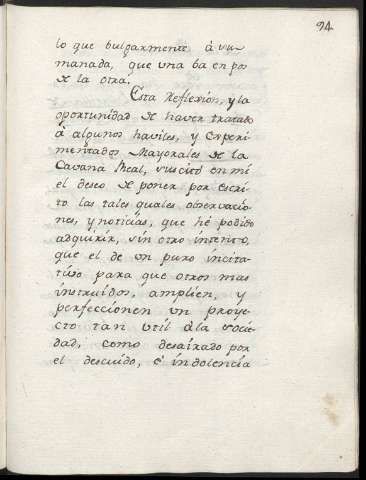 94
lo que bulgarmente à vu-
manada, que una ba en pos
de la otra.
Esta Reflexión, y la
oportunidad de haver tratado
à algunos haviles, y Experi-
mentados Mayorales de la
Cavana Real, suscitó en mi
el deseo de poner por escri-
to las tales quales observacio-
nes, y noticias, que hé podido
adquirir, sin otro intento,
que el de un puro incita-
tivo para que otros mas
instruidos, amplien, y
perfeccionen un proye-
cto tan util àla socie-
dad, como desairado por
el descuido, é indolencia